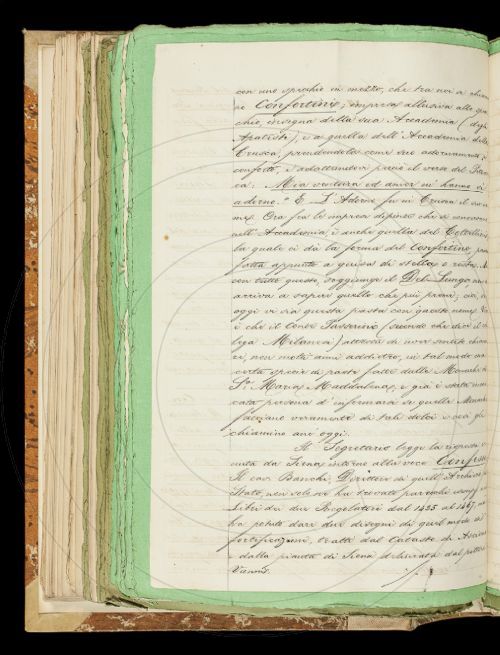 con uno specchio in mezzo, che tra noi si chia
se Confortinio; impresa allusiva allo spe
chio, insegna della sua Accademia (degli
Apatisti) e a quella dell'Accademia della
Crusca, prendendolo come suo adornamento e
conforto, e adattandovi perciò il verso del Petra
ca: Mia ventura ed amor m' hanno sì
adorno." E L'Adorno fu in Crusca il suo no
me. Ora fra le imprese dipinte che si conservano
nell'Accademia, è anche quella del
la quale ci dà la forma del Confortino, pa
fatta appunto a guisa di stella, e resta. Ma
con tutto questo, soggiunge il Del Lungo non
arriva a sapere quello che più preme; cioè,
oggi vi sia questa pasta con questo nome. Ve
è che il Conte Passerini (secondo che dice il co
lega Milanesi) attesta di aver sentito chiama
re, non molti anni addietro, in tal modo una
certa specie di paste fatte dalle Monache di
Sa. Maria Maddalena, e già è stata inca
cata persona d'informarsi se quelle Monache
facciano veramente di tali dolci e così gli
chiamino anc'oggi.
Il Segretario legge la risposta ve
nuta da Siena intorno alla voce
Il cav. Banchi, Direttore di quell'Archivio di
Stato, non solo ne ha trovato parecchi esempi
Libri dei due Regolatori dal 1435 al 1467, ma
ha potuto dare due disegni di quel modo di
fortificazione, tratti dal Catasto di Asciano
e dalla pianta di Siena delineata dal pittore
Vanni.